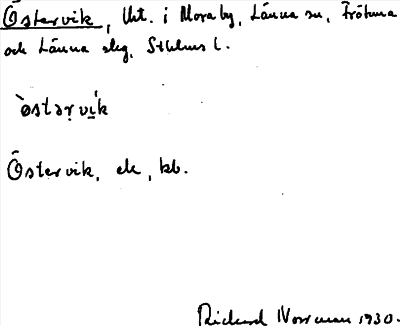 Östervik, Utt. i Moraby, Länna sn, Frötuna
och Länna slg, Sthlms l.
`östərvi̱k
Östervik, ek, kb.
Rickard Norrman 1930.